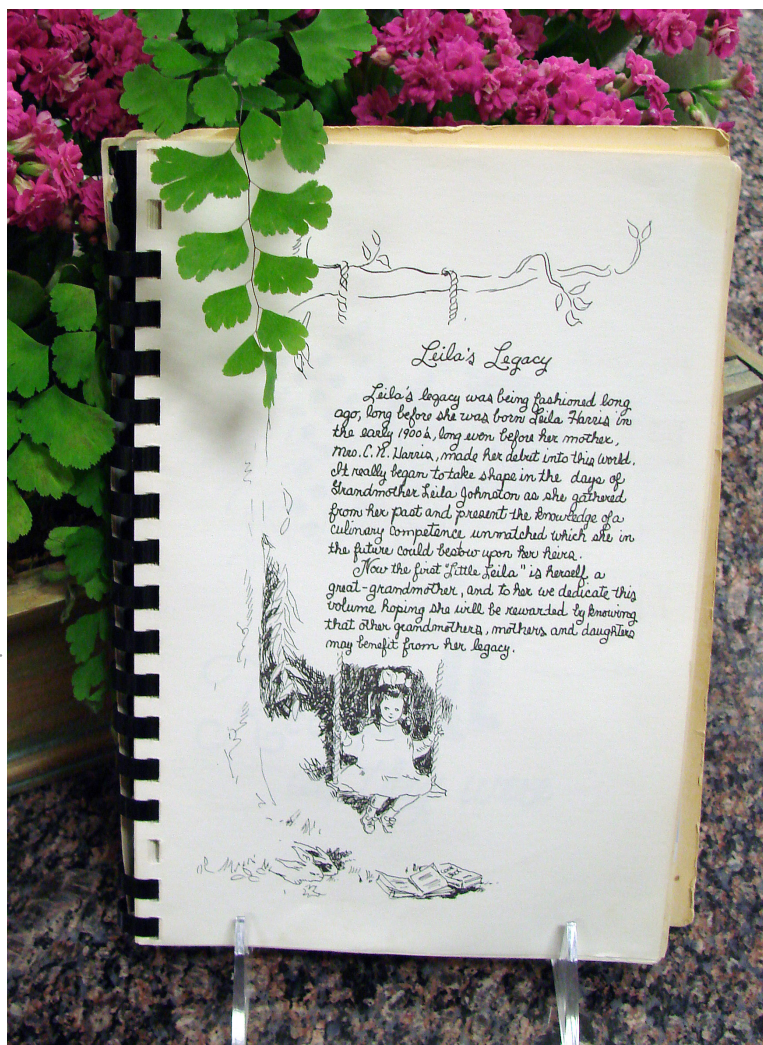 Leila's Legacy
Leila's legacy was being fashioned long
ago, long before she was born Leila Harris in
the early 1900's, long even before her mother,
Mrs. C. N. Harris, made her debut into this world.
It really began to take shape in the days of
Grandmother Leila Johnston as she gathered
from her past and present the knowledge of a
culinary competence unmatched which she in
the future could bestow upon her heirs.
Now the first "Little Leila" is herself a
great-grandmother, and to her we dedicate this
volume hoping she will be rewarded by knowing
that other grandmothers, mothers and daughters
may benefit from her legacy.